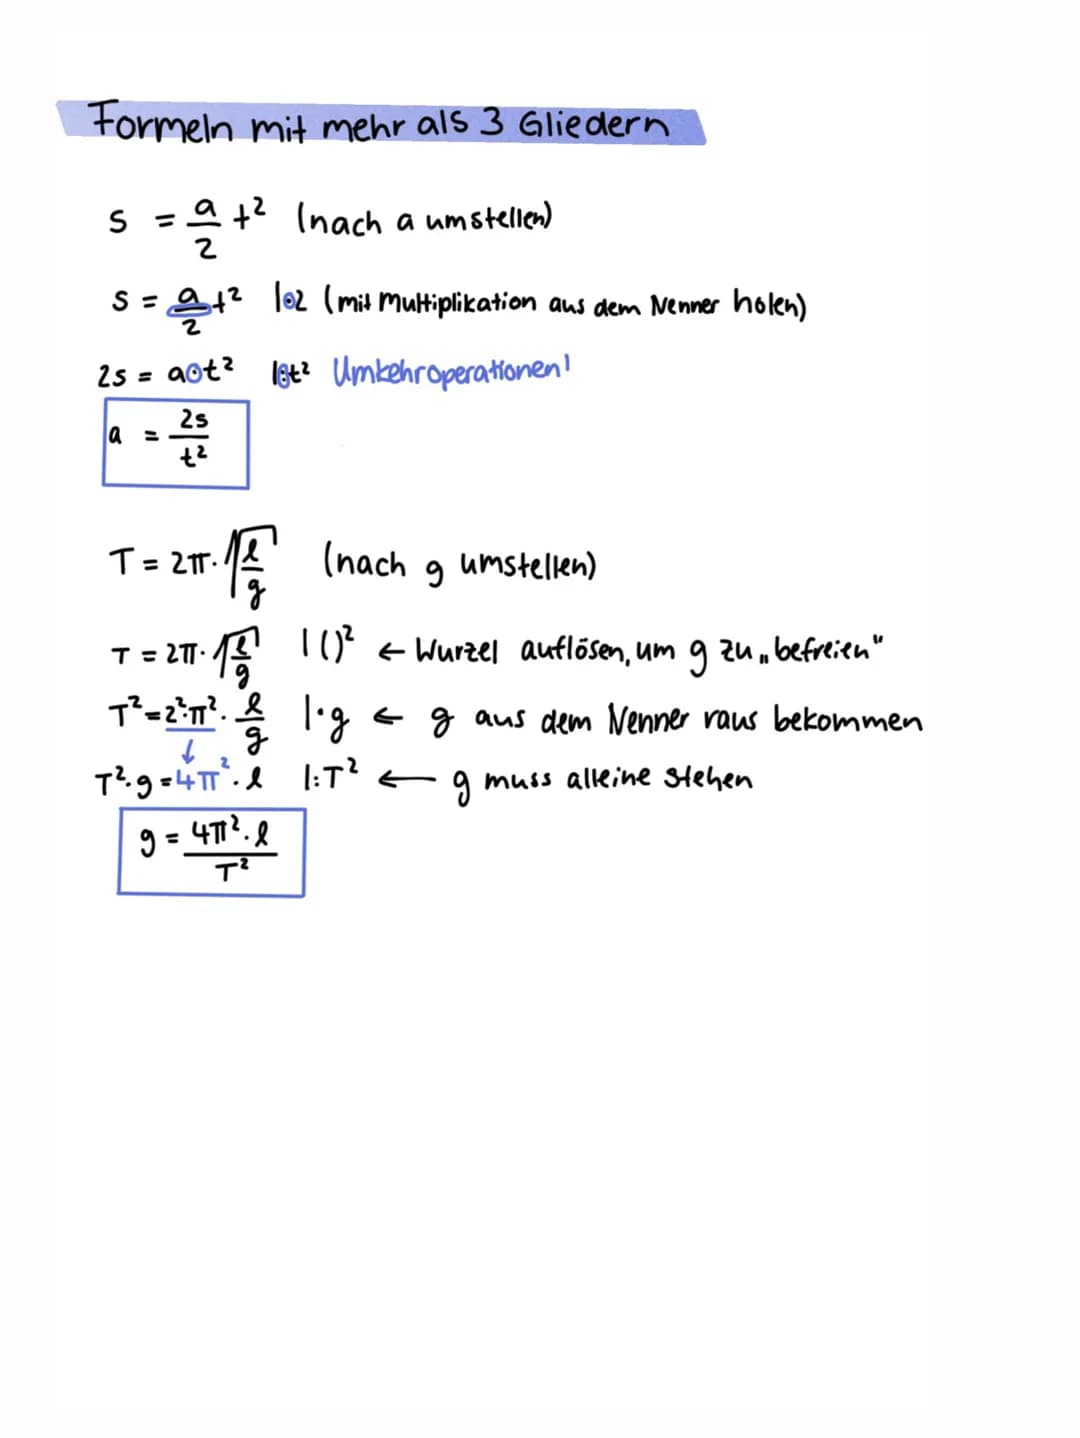 Formeln mit mehr als 3 Gliedern
s = a/2 t² (nach a umstellen)
s = a/2 t² |·2 (mit Multiplikation aus dem Nenner holen)
2s = a·t² |:t² Umkehroperationen!
a = 2s/t²
T = 2π·√(l/g) (nach g umstellen)
T = 2π·√(l/g) | ()² ← Wurzel auflösen, um g zu „befreien“
T² = 2²·π²· l/g |·g ← g aus dem Nenner raus bekommen
↓
T²·g = 4π²·l |:T² ← g muss alleine stehen
g = 4π²·l/T²